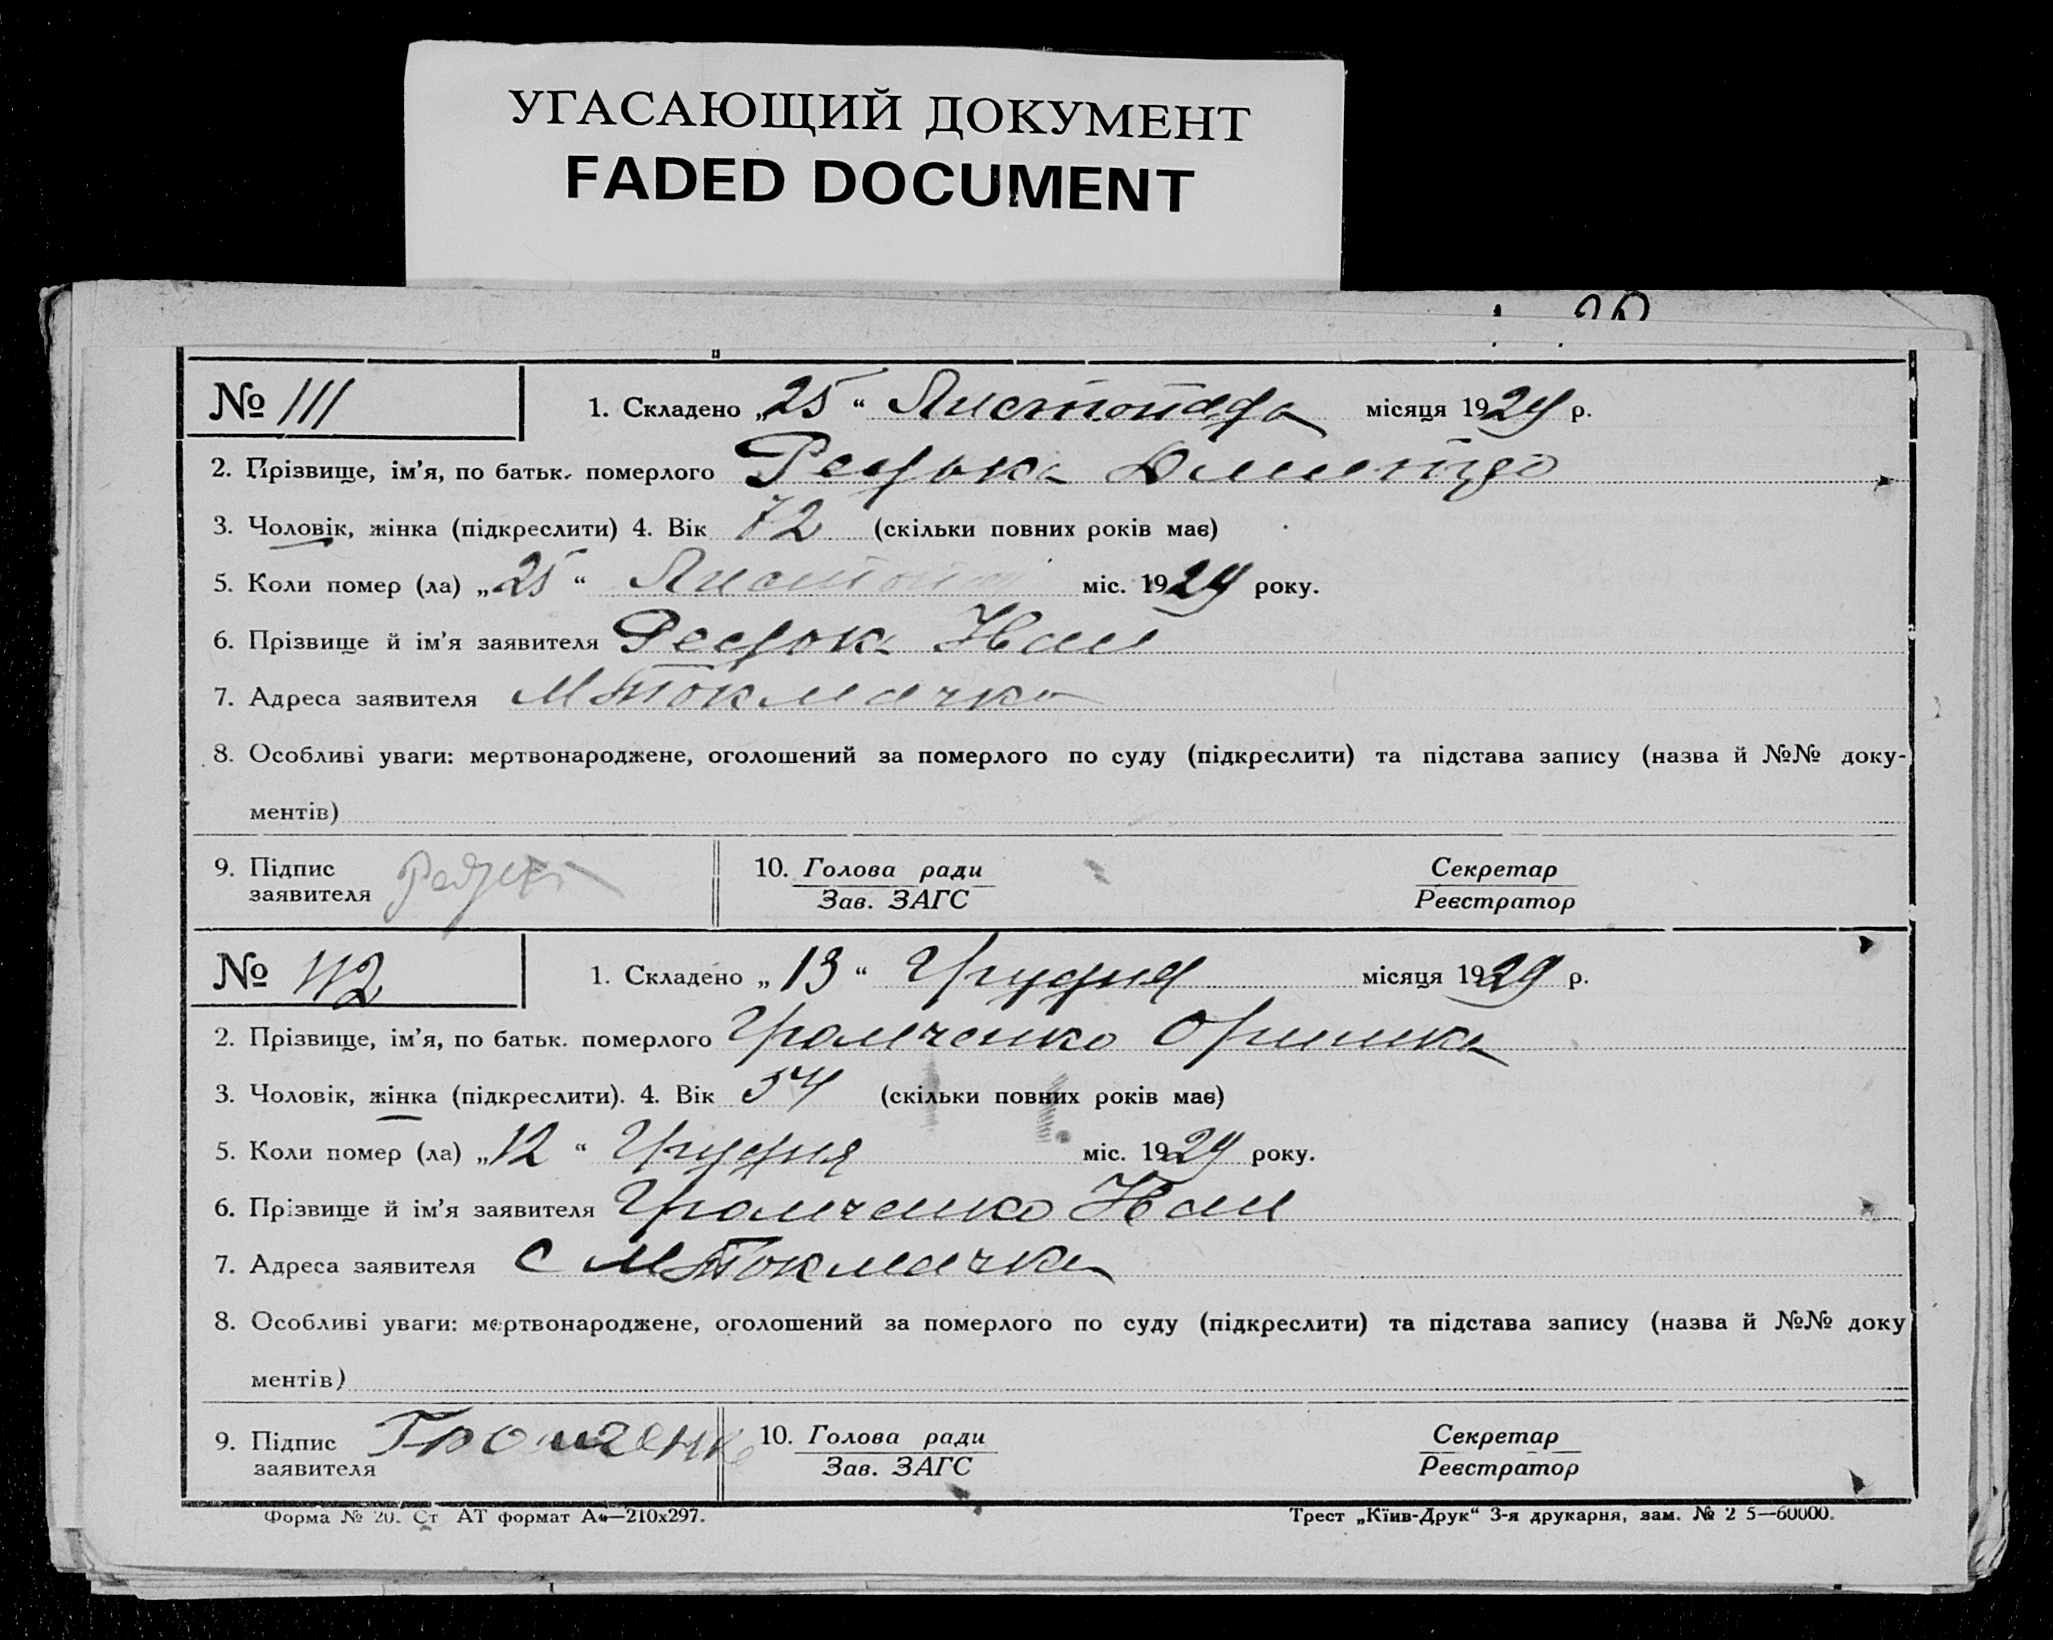 УГАСАЮЩИЙ ДОКУМЕНТ
FADED DOCUMENT
№ 111
1. Складено „25“ Листопада місяця 1929 р.
2. Прізвище, ім'я, по батьк. померлого Редька Дмитро
3. Чоловік, жінка (підкреслити) 4. Вік 72 (скільки повних років має)
5. Коли помер (ла) „25“ Листопад міс. 1929 року.
6. Прізвище й ім'я заявителя Редька Иван
7. Адреса заявителя М Токмачка
8. Особливі уваги: мертвонароджене, оголошений за померлого по суду (підкреслити) та підстава запису (назва й №№ доку-
ментів)
9. Підпис заявителя 10. Голова ради Секретар
Зав. ЗАГС Реєстратор
№ 112
1. Складено „13“ Грудня місяця 1929 р.
2. Прізвище, ім'я, по батьк. померлого Громченко Оришка
3. Чоловік, жінка (підкреслити). 4. Вік 54 (скільки повних років має)
5. Коли помер (ла) „12“ Грудня міс. 1929 року.
6. Прізвище й ім'я заявителя Громченко Иван
7. Адреса заявителя с М Токмачка
8. Особливі уваги: мертвонароджене, оголошений за померлого по суду (підкреслити) та підстава запису (назва й №№ доку
ментів)
9. Підпис заявителя Громченко 10. Голова ради Секретар
Зав. ЗАГС Реєстратор
Форма № 20. Ст АТ формат А4—210х297. Трест „Київ-Друк“ 3-я друкарня, зам. № 2 5—60000.